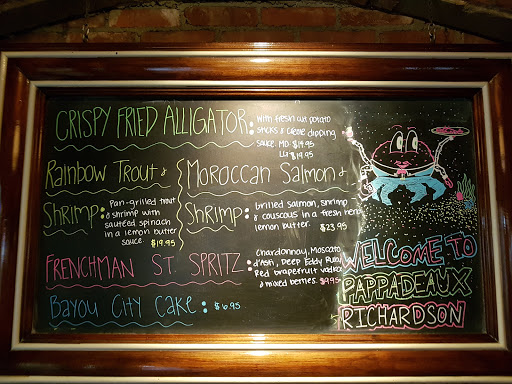 CRISPY FRIED ALLIGATOR: with fresh cut potato
sticks & creole dipping
sauce. MD $14.95
LG $19.95
Rainbow Trout &
Shrimp: Pan-grilled trout
& shrimp with
sautéed spinach
in a lemon butter
sauce. $19.95
Moroccan Salmon &
Shrimp: Grilled salmon, shrimp
& couscous in a fresh herb
lemon butter. $23.95
FRENCHMAN ST. SPRITZ: Chardonnay, Moscato
d'Asti, Deep Eddy Ruby
Red grapefruit vodka
& mixed berries. $9.95
Bayou City Cake: $6.95
WELCOME TO
PAPPADEAUX
RICHARDSON